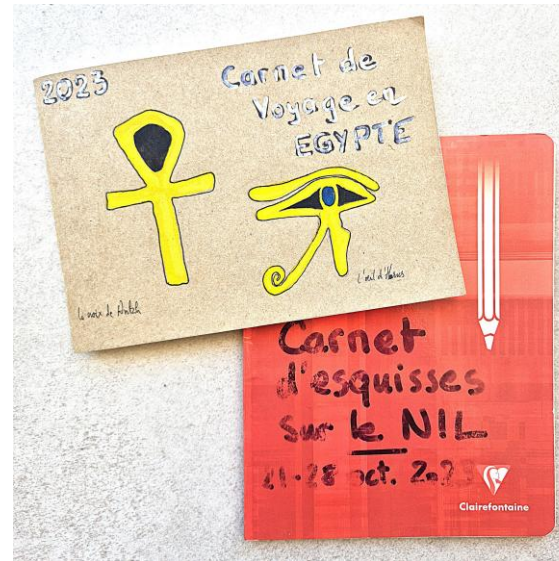 2023
Carnet de
Voyage en
EGYPTE
la croix de Ankh
L'oeil d'Horus
Carnet
d'esquisses
sur le NIL
21-28 oct. 2023
Clairefontaine